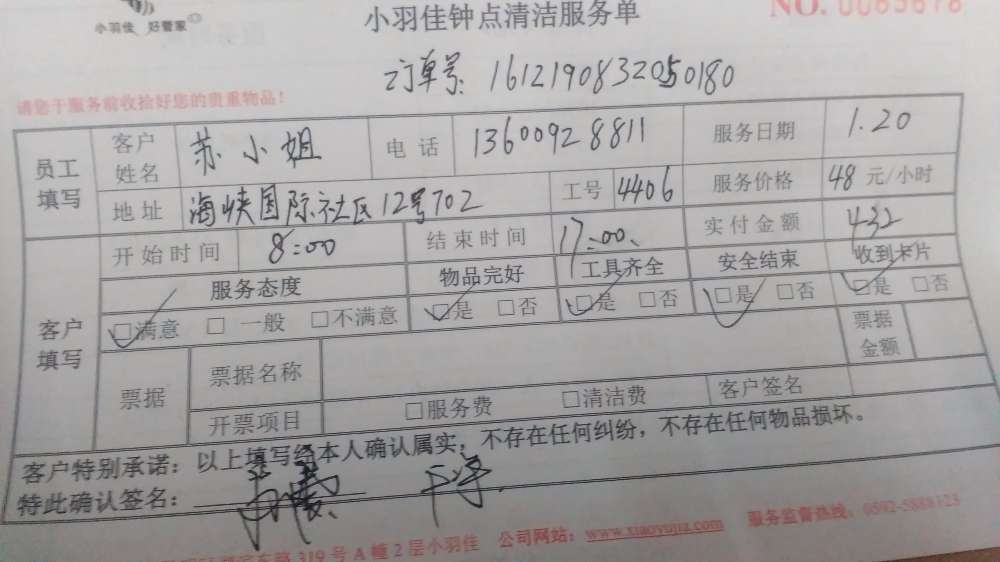 小羽佳 好管家
小羽佳钟点清洁服务单
NO. 0085678
订单号: 1612190832050180
请您于服务前收拾好您的贵重物品!
员工填写 客户姓名 苏小姐 电话 13600928811 服务日期 1.20
地址 海峡国际社区12号702 工号 4406 服务价格 48 元/小时
客户填写 开始时间 8:00 结束时间 17:00 实付金额 432
服务态度 物品完好 工具齐全 安全结束 收到卡片
□满意 □ 一般 □不满意 □是 □否 □是 □否 □是 □否 □是 □否
票据 票据名称 票据金额
开票项目 □服务费 □清洁费 客户签名
客户特别承诺:以上填写经本人确认属实,不存在任何纠纷,不存在任何物品损坏。
特此确认签名:
路 319 号 A 幢 2 层小羽佳 公司网站:www.xiaoyujia.com 服务监督热线:0592-5888123